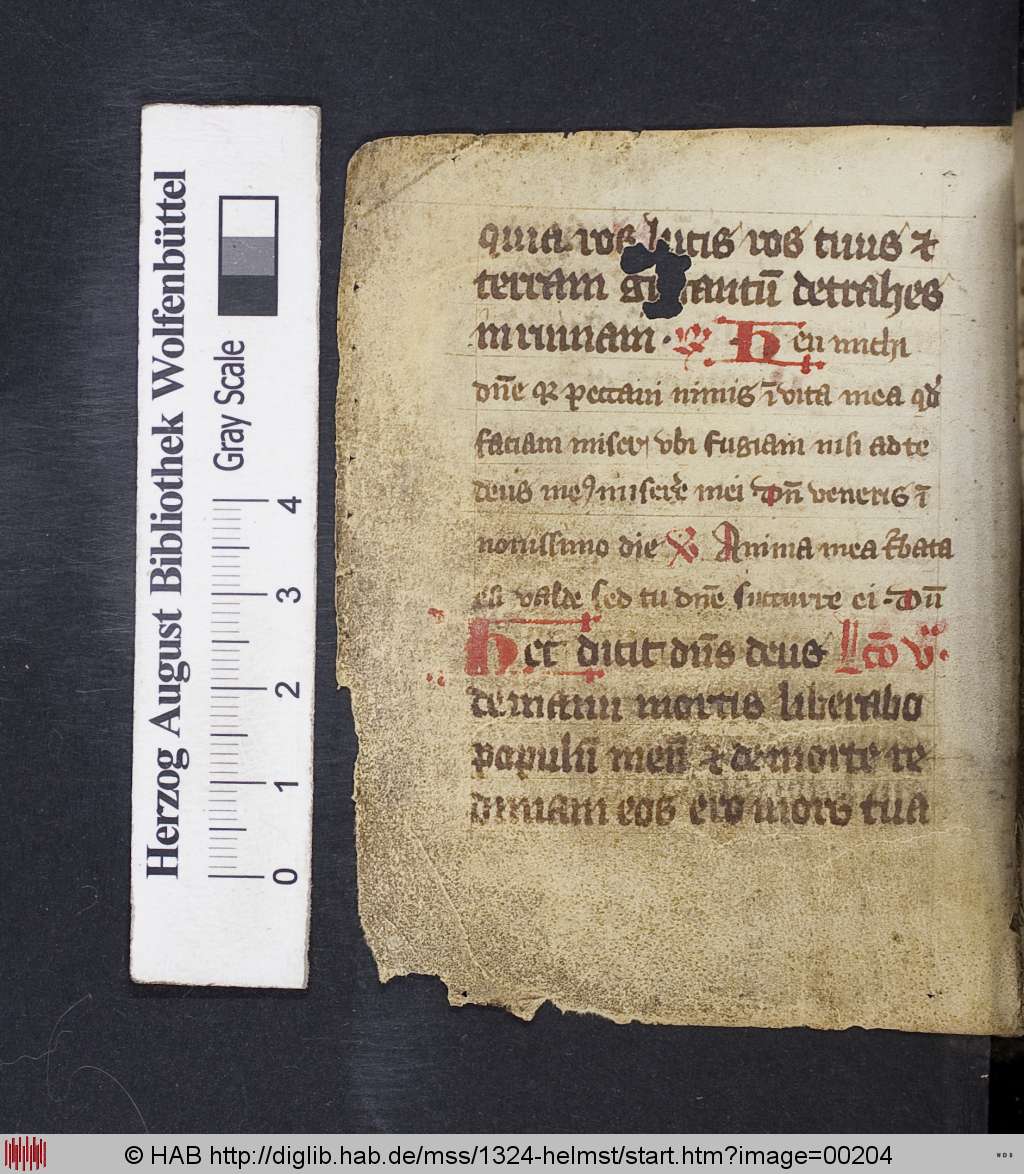 Herzog August Bibliothek Wolfenbüttel
Gray Scale
0 1 2 3 4
quia ros lucis ros tuus ⁊
terram gigantū detrahes
in ruinam. R Heu michi
dn̄e qꝛ peccaui nimis ī vita mea qd̓
faciam miser vbi fugiam nisi ad te
deus meꝰ miserē mei Dūm veneris ī
nouissimo die V Anima mea t̄bata
est valde sed tu dn̄e succurre ei. Dū
Hec dicit dn̄s deus Lc̄o v.
de manu mortis liberabo
populū meū ⁊ de morte re
dimam eos ero mors tua
© HAB http://diglib.hab.de/mss/1324-helmst/start.htm?image=00204